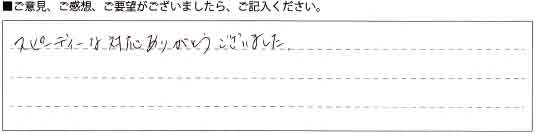 ■ご意見、ご感想、ご要望がございましたら、ご記入ください。
スピーディーな対応ありがとうございました。